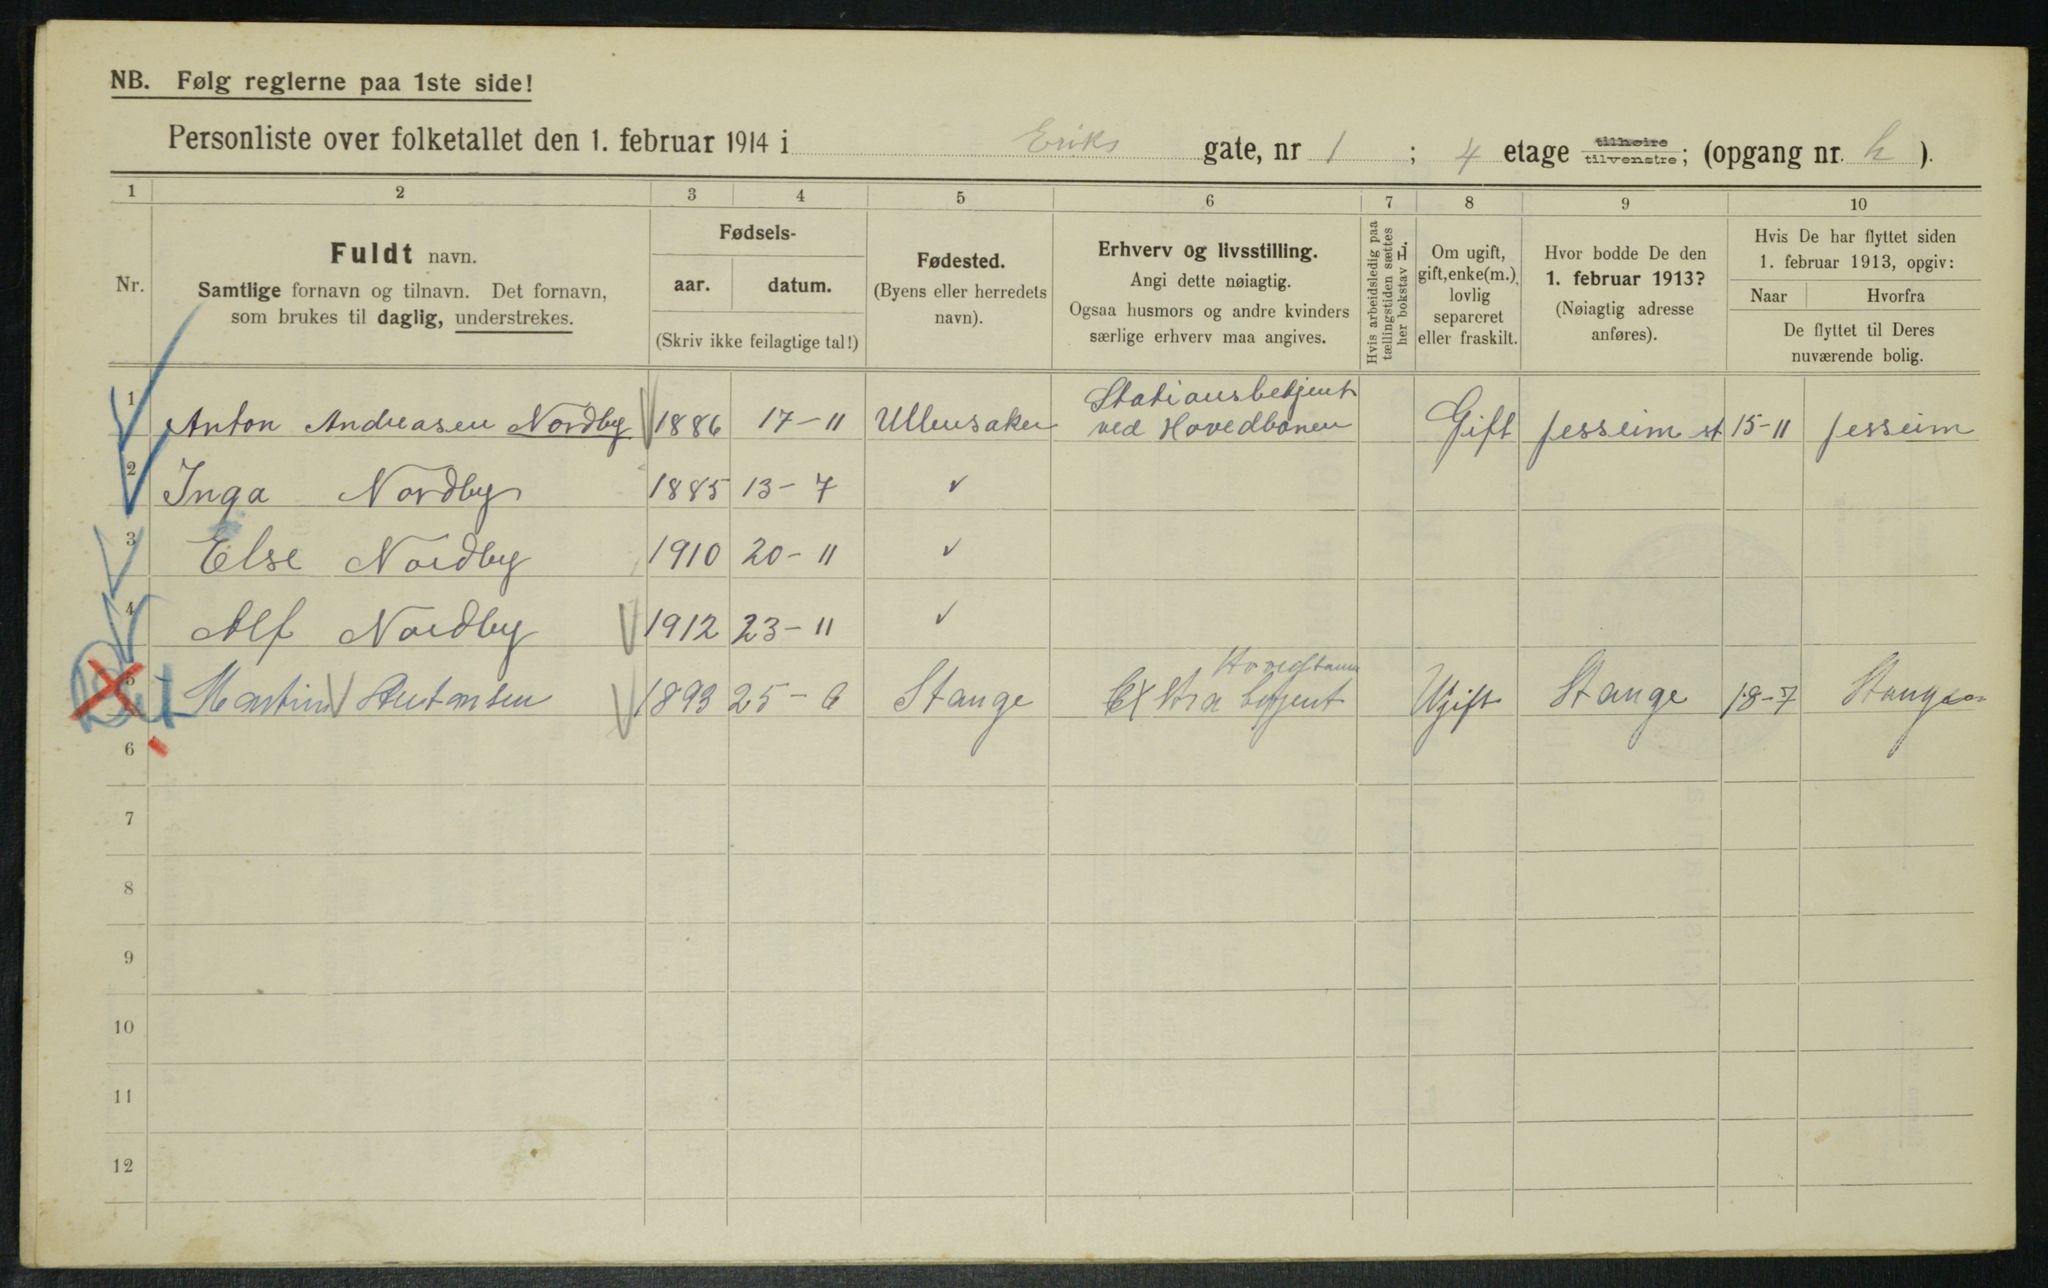 NB. Følg reglerne paa 1ste side!
Personliste over folketallet den 1. februar 1914 i Eriks gate, nr 1 ; 4 etage tilhøire tilvenstre; (opgang nr. h ).
1 2 3 4 5 6 7 8 9 10
Nr.
Fuldt navn.
Samtlige fornavn og tilnavn. Det fornavn,
som brukes til daglig, understrekes.
Fødsels-
aar. datum.
(Skriv ikke feilagtige tal!)
Fødested.
(Byens eller herredets
navn).
Erhverv og livsstilling.
Angi dette nøiagtig.
Ogsaa husmors og andre kvinders
særlige erhverv maa angives.
Hvis arbeidsledig paa
tællingstiden sættes
her bokstav L.
Om ugift,
gift, enke(m.),
lovlig
separeret
eller fraskilt.
Hvor bodde De den
1. februar 1913?
(Nøiagtig adresse
anføres).
Hvis De har flyttet siden
1. februar 1913, opgiv:
Naar Hvorfra
De flyttet til Deres
nuværende bolig.
1 Anton Andreasen Nordby 1886 17-11 Ullensaker Stationsbetjent ved Hovedbanen Gift Jesseim st 15-11 Jesseim
2 Inga Nordby 1885 13-7 ✓
3 Else Nordby 1910 20-11 ✓
4 Alf Nordby 1912 23-11 ✓
5 Martin 1893 25-6 Stange Extra betjent Hovedbanen Ugift Stange 18-7 Stange
6
7
8
9
10
11
12